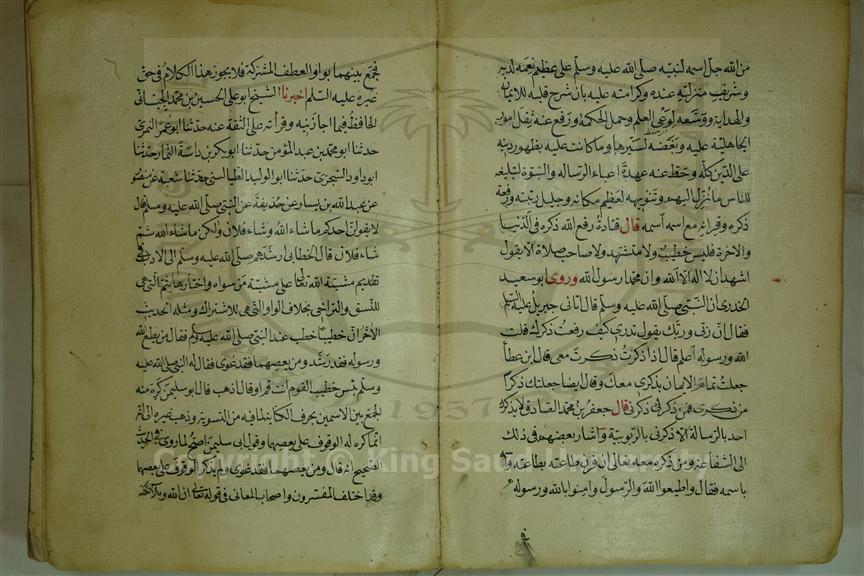 من الله جل اسمه لنبيه صلى الله عليه وسلم على عظيم نعمه لديه
وشريف منزلته عنده وكرامته عليه بان شرح قلبه للايمان
والهداية ووسعه لوعى العلم وحمل الحكمة ورفع عنه ثقل امور
الجاهلية عليه وبغضه لسيرها وما كانت عليه بظهور دينه
على الدين كله وحط عنه عهدة اعباء الرسالة والنبوة لتبليغه
للناس ما نزل اليهم وتنويهه لعظيم مكانه وجليل رتبته ورفعة
ذكره وقرانه مع اسمه اسمه قال قتادة رفع الله ذكره فى الدنيا
والاخرة فليس خطيب ولا متشهد ولا صاحب صلاة الا يقول
اشهد ان لا اله الا الله وان محمدا رسول الله وروى ابو سعيد
الخدرى ان النبى صلى الله عليه وسلم قال اتانى جبريل عليه السلم
فقال ان ربى وربك يقول تدرى كيف رفعت ذكرك قلت
الله ورسوله اعلم قال اذا ذكرت ذكرت معى قال ابن عطأ
جعلت تمام الايمان بذكرى معك وقال ايضا جعلتك ذكرا
من ذكرى فمن ذكرك ذكرنى قال جعفر بن محمد الصادق لا يذكرك
احد بالرسالة الا ذكرنى بالربوبية واشار بعضهم فى ذلك
الى الشفاعة ومن ذكره معه تعالى ان قرن طاعته بطاعته واسمه
باسمه فقال واطيعوا الله والرسول وامنوا بالله ورسوله
فجمع بينهما بواو العطف المشركة فلا يجوز هذا الكلام فى حق
غيره عليه السلم اخبرنا الشيخ ابو على الحسين بن محمد الجيانى
الحافظ فيما اجازنيه وقرأته على الثقة عنه حدثنا ابو عمر النمرى
حدثنا ابو محمد بن عبد المؤمن حدثنا ابو بكر بن داسة التمار حدثنا
ابو داود السجزى حدثنا ابو الوليد الطيالسى حدثنا شعبة عن منصور
عن عبد الله بن يسار عن حذيفة عن النبى صلى الله عليه وسلم قال
لا يقولن احدكم ما شاء الله وشاء فلان ولكن ما شاء الله ثم
شاء فلان قال الخطابى ارشدهم صلى الله عليه وسلم الى الادب فى
تقديم مشية الله تعالى على مشية من سواه واختارها بثم التى هى
للنسق والتراخى بخلاف الواو التى هى للاشتراك ومثله الحديث
الاخر ان خطيبا خطب عند النبى صلى الله عليه وسلم فقال من يطع الله
ورسوله فقد رشد ومن يعصهما فقد غوى فقال له النبى صلى الله عليه
وسلم بئس خطيب القوم انت قم او قال اذهب قال ابو سليمن كره منه
الجمع بين الاسمين بحرف الكناية لما فيه من التسوية وذهب غيره الى انه
انما كره له الوقوف على يعصهما وقول ابى سليمن اصح لما روى فى الحديث
الصحيح انه قال ومن يعصهما فقد غوى ولم يذكر الوقوف على يعصهما
وقد اختلف المفسرون واصحاب المعانى فى قوله تعالى ان الله وملائكته
1957
Copyright © King Saud University